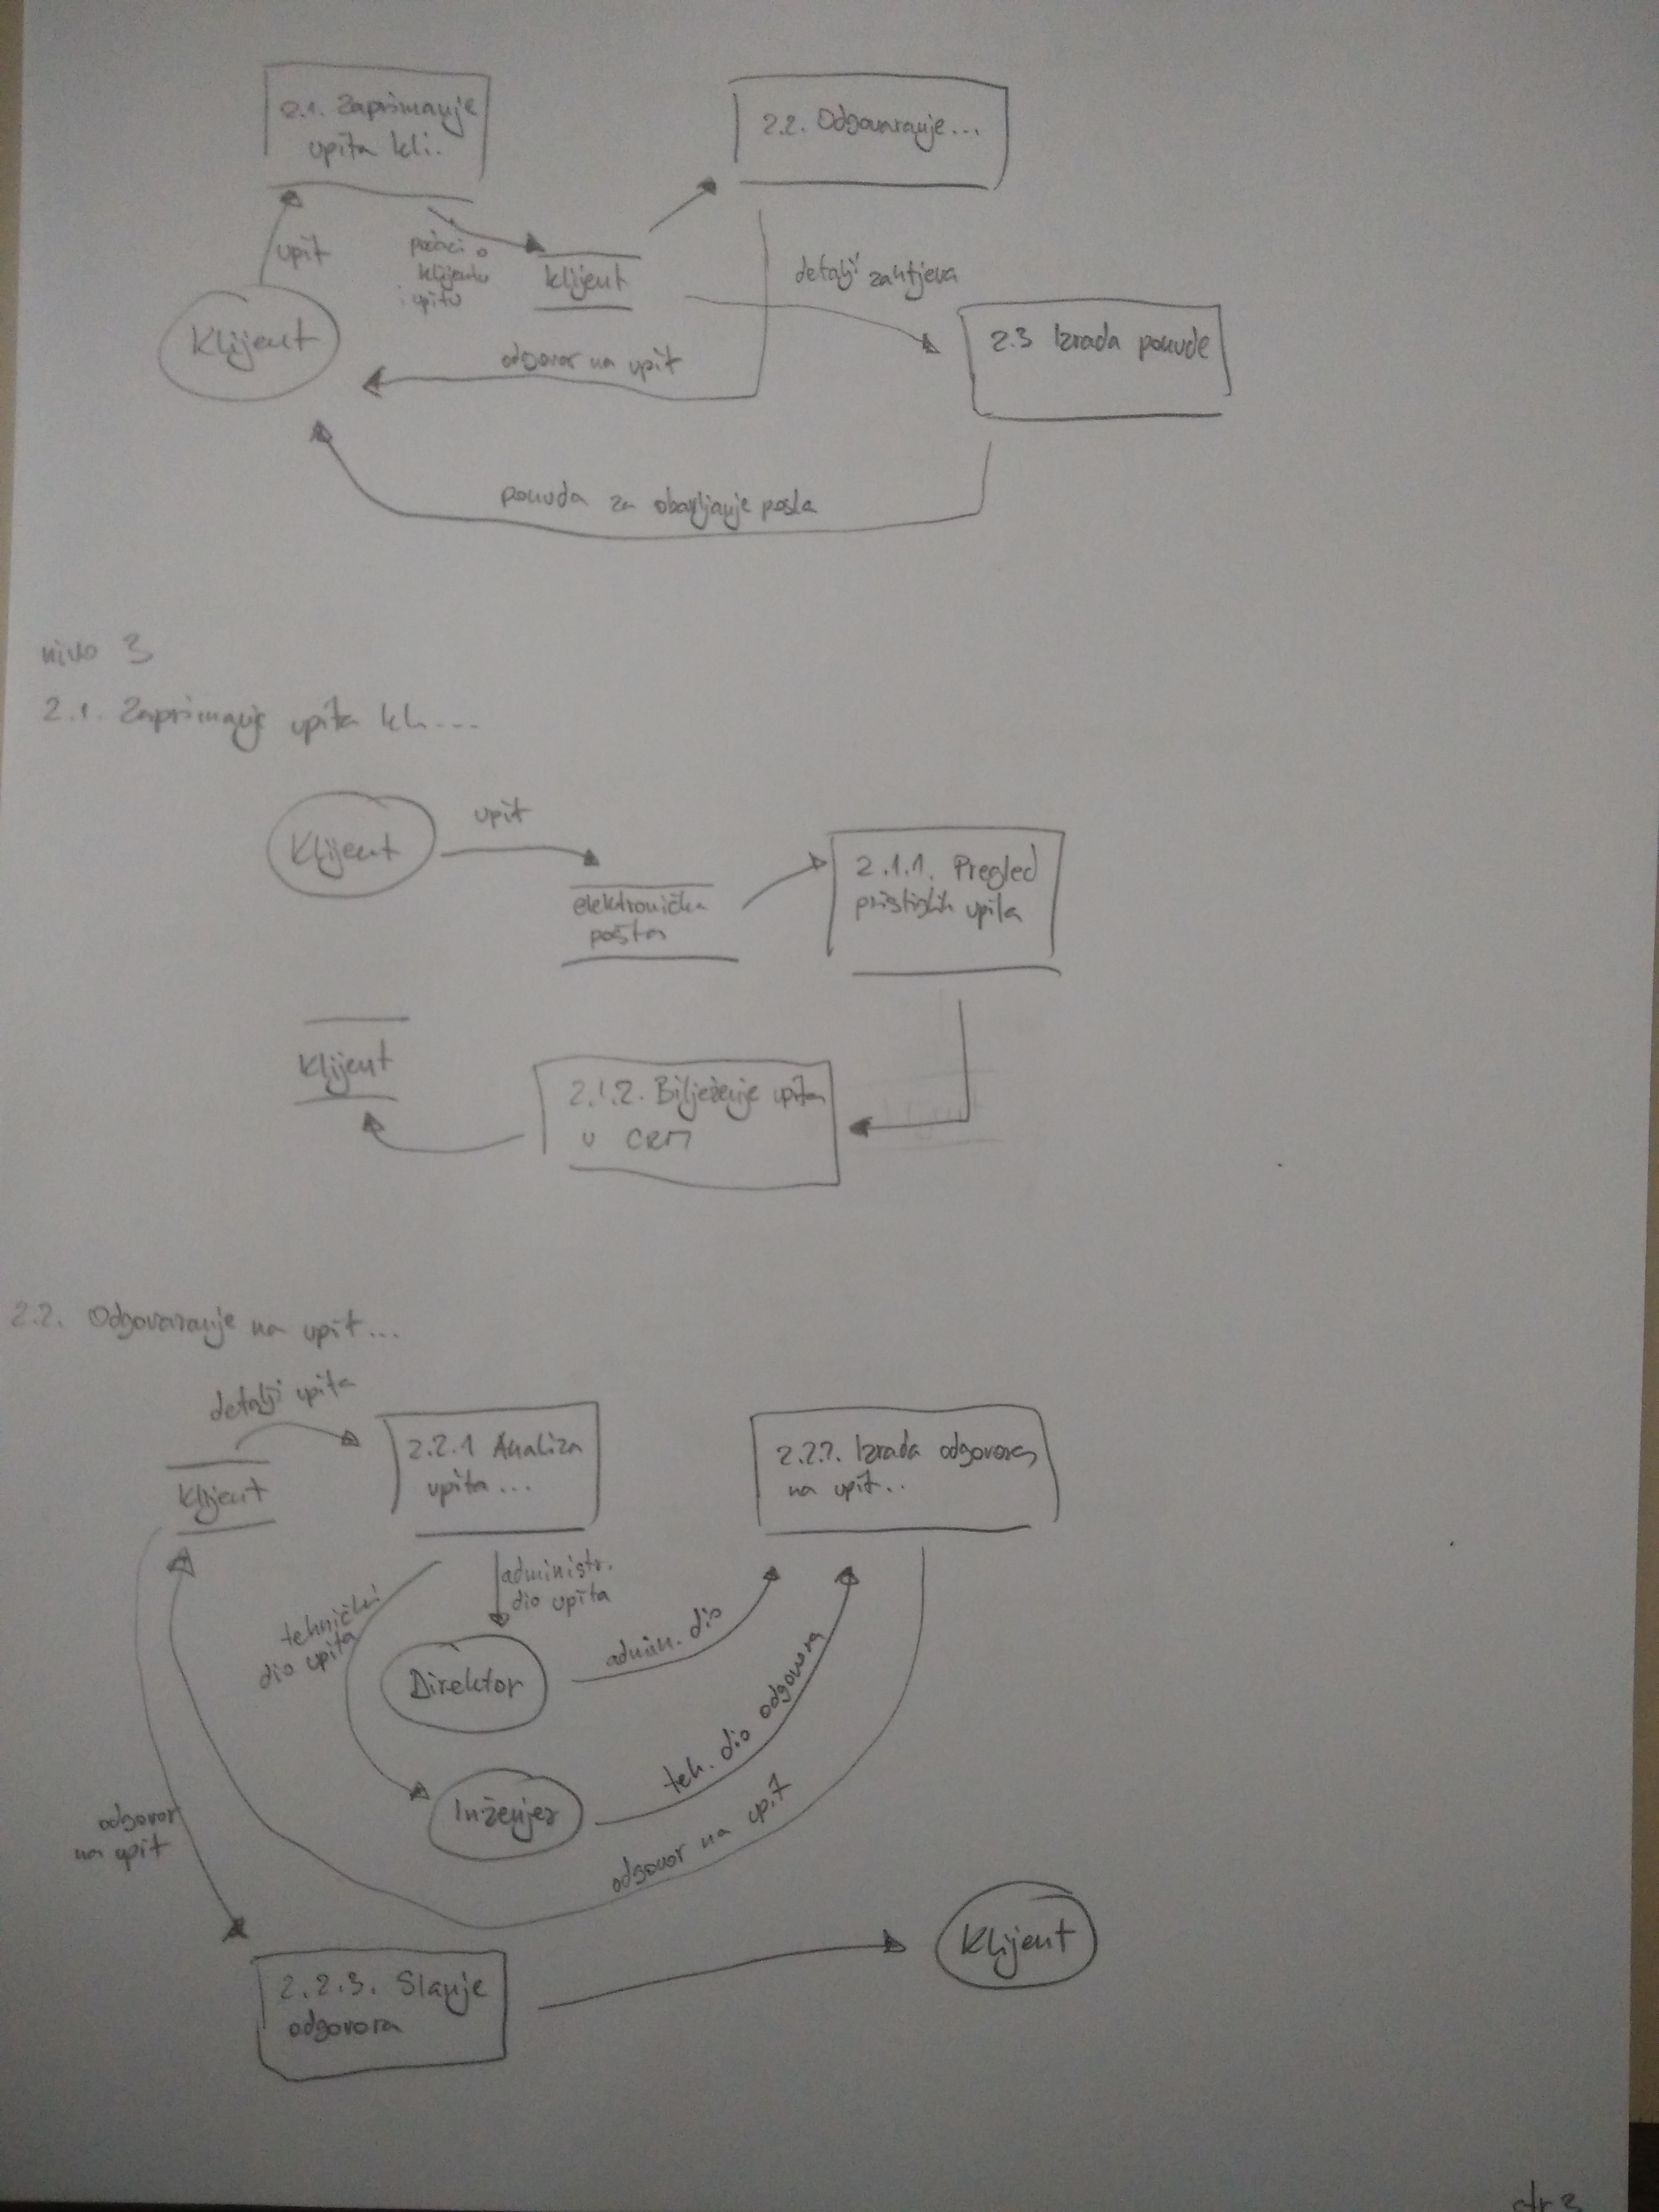 2.1. Zaprimanje
upita kli.
2.2. Odgovaranje...
upit
podaci o
klijentu
i upitu
klijent
detalji zahtjeva
Klijent
2.3 Izrada ponude
odgovor na upit
ponuda za obavljanje posla
nivo 3
2.1. Zaprimanje upita kli...
Klijent
upit
elektronička
pošta
2.1.1. Pregled
pristiglih upita
klijent
2.1.2. Bilježenje upita
u CRM
2.2. Odgovaranje na upit...
detalji upita
klijent
2.2.1 Analiza
upita...
2.2.2. Izrada odgovora
na upit..
tehnički
dio upita
administr.
dio upita
Direktor
admin. dio
Inženjer
teh. dio odgovora
odgovor
na upit
odgovor na upit
2.2.3. Slanje
odgovora
Klijent
str 3